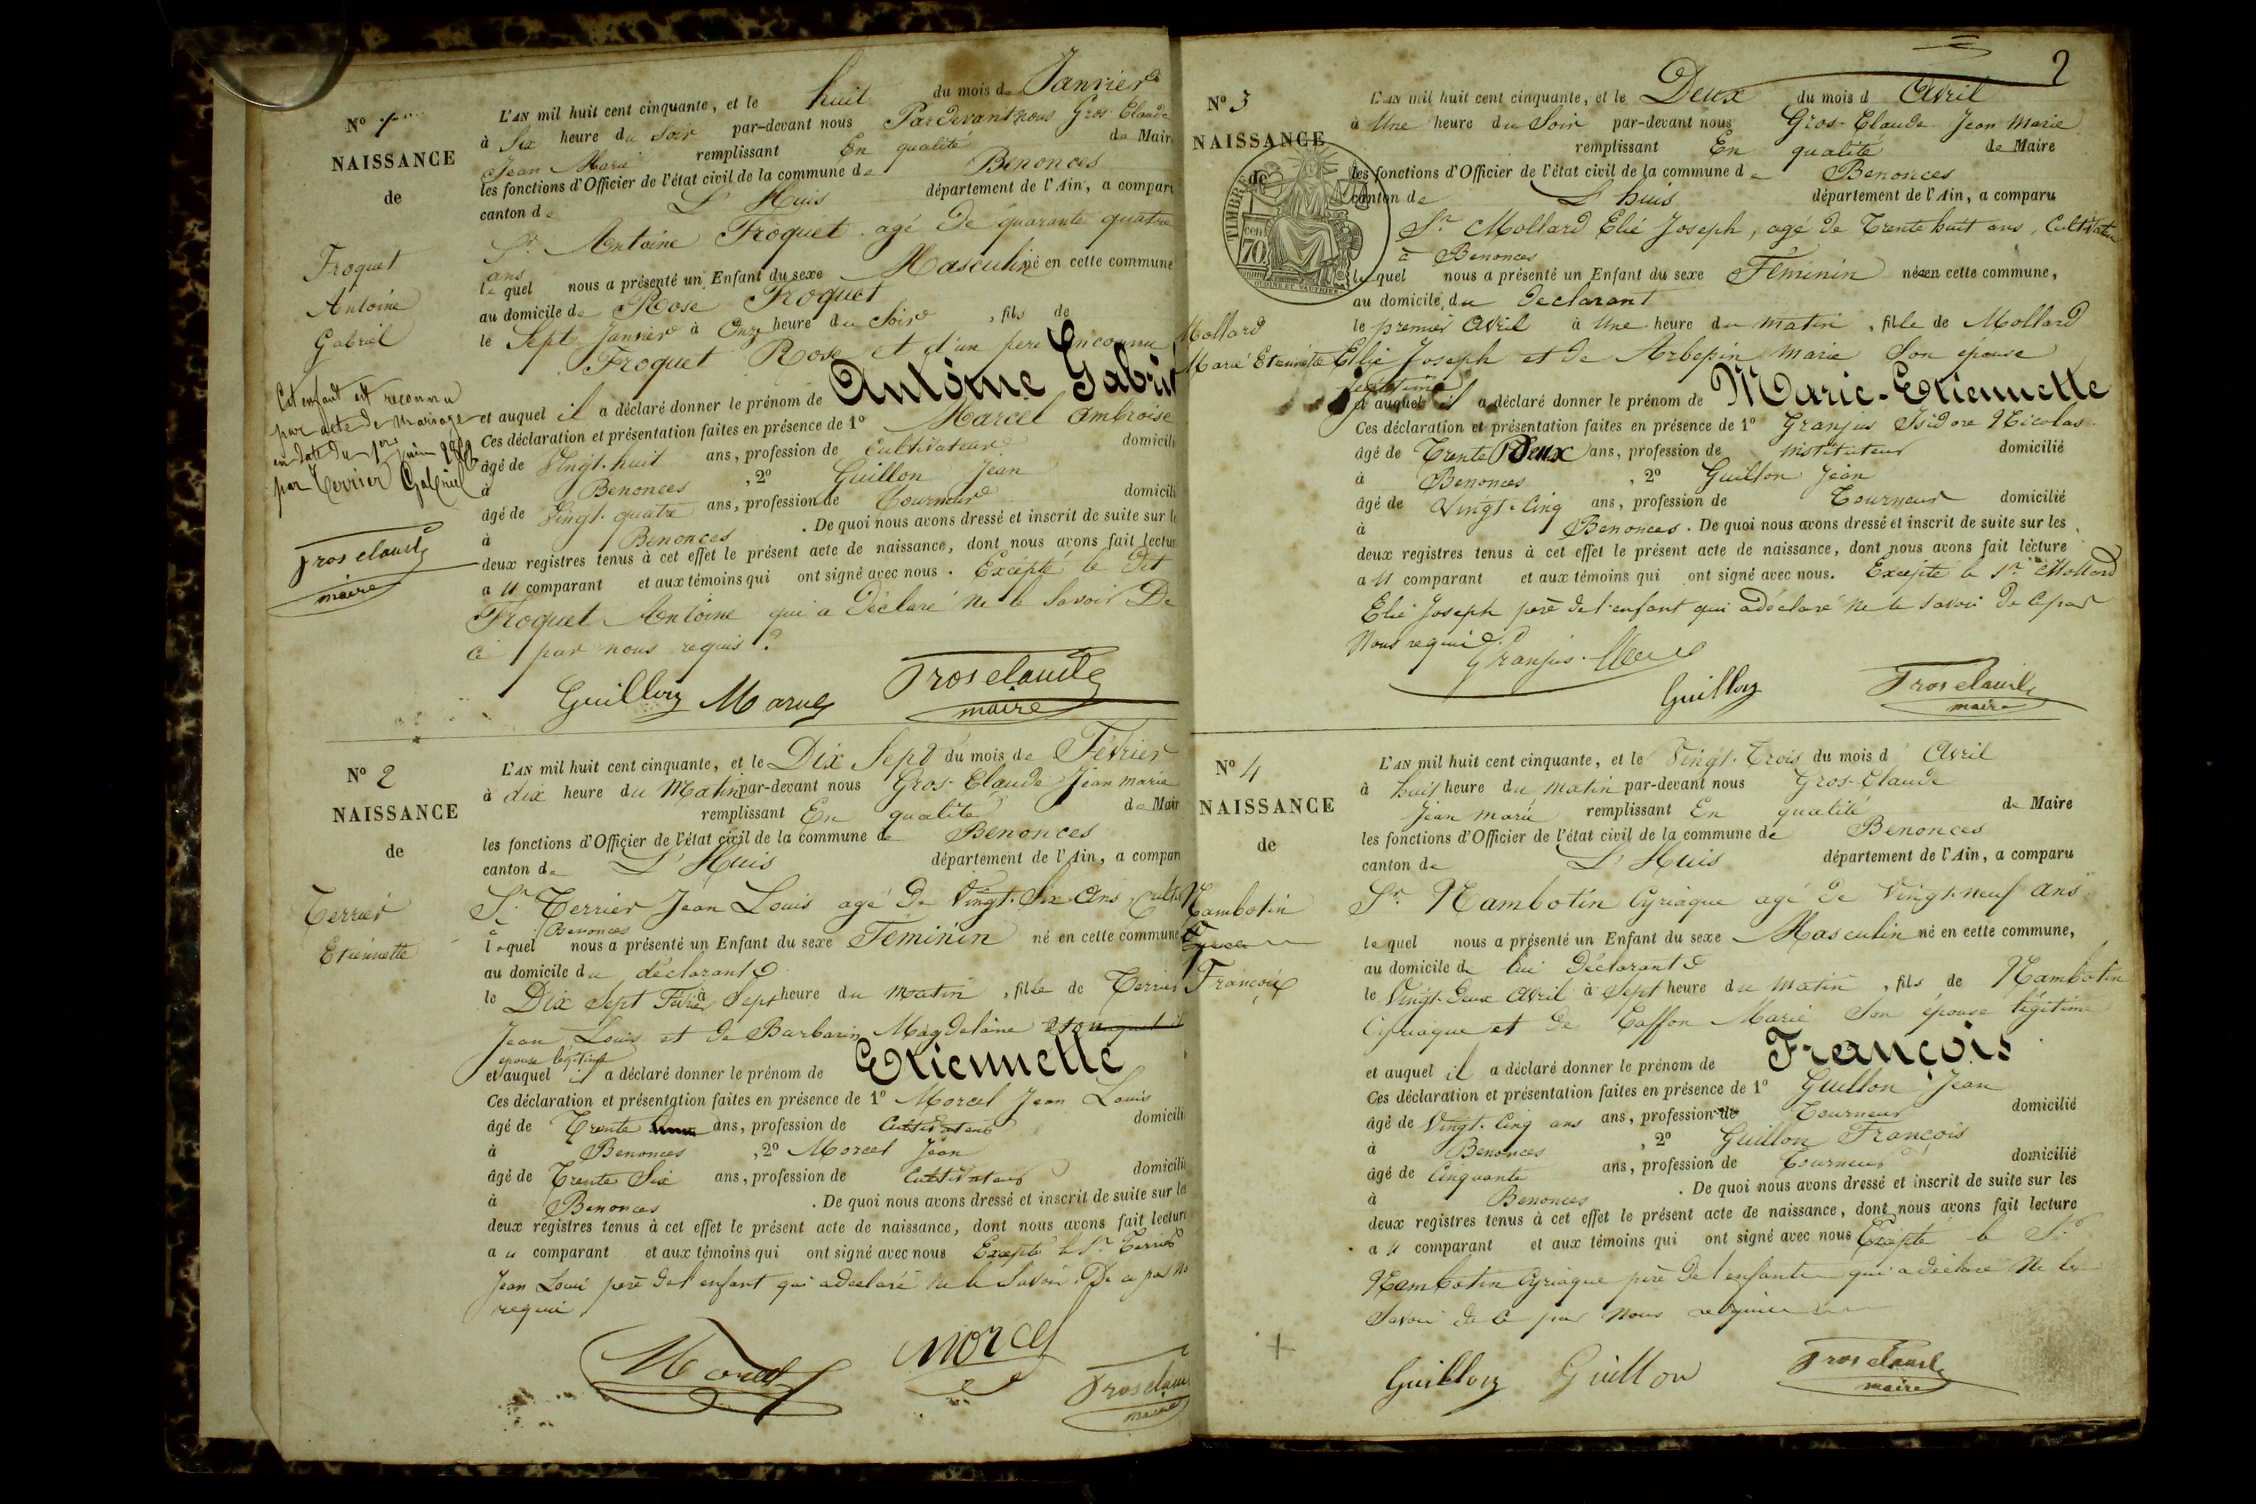 No 1
NAISSANCE
de
Froquet
Antoine
Gabriel
Cet enfant est reconnu
par acte de mariage
en date du 1er juin
par Terrier Gabriel
Grosclaude
maire
L'AN mil huit cent cinquante, et le huit du mois de Janvier
à Six heure du Soir par-devant nous Pardevant nous Gros-Claude
Jean Marie remplissant En qualité de Maire
les fonctions d'Officier de l'état civil de la commune de Benonces
canton de L'Huis département de l'Ain, a comparu
Sr. Antoine Froquet agé de quarante quatre
ans
lequel nous a présenté un Enfant du sexe Masculin né en cette commune
au domicile de Rose Froquet
le Sept Janvier à Onze heure du Soir, fils de
Froquet Rose et d'un père Inconnu
et auquel il a déclaré donner le prénom de Antoine Gabriel
Ces déclaration et présentation faites en présence de 1º Marcel Ambroise
âgé de Vingt-huit ans, profession de Cultivateur domicilié
à Benonces, 2º Guillon Jean
âgé de Vingt-quatre ans, profession de Tourneur domicilié
à Benonces. De quoi nous avons dressé et inscrit de suite sur les
deux registres tenus à cet effet le présent acte de naissance, dont nous avons fait lecture
a u comparant et aux témoins qui ont signé avec nous. Excépté le dit
Froquet Antoine qui a déclaré ne le Savoir De
ce par nous requis
Guillon Grosclaude
maire
No 2
NAISSANCE
de
Terrier
Etiennette
L'AN mil huit cent cinquante, et le Dix Sept du mois de Février
à dix heure du Matin par-devant nous Gros-Claude Jean marie
remplissant En qualité de Maire
les fonctions d'Officier de l'état civil de la commune de Benonces
canton de L'Huis département de l'Ain, a comparu
Sr. Terrier Jean Louis agé de Vingt-Six ans,
à Benonces
lequel nous a présenté un Enfant du sexe Féminin né en cette commune
au domicile du déclarant
le Dix Sept Février à Sept heure du matin, fille de Terrier
Jean Louis et de Barbarin Magdelaine son
epouse légitime
et auquel il a déclaré donner le prénom de Etiennette
Ces déclaration et présentation faites en présence de 1º Morcel Jean Louis
âgé de Trente ans, profession de Cultivateur domicilié
à Benonces, 2º Morcel Jean
âgé de Trente Six ans, profession de Cultivateur domicilié
à Benonces. De quoi nous avons dressé et inscrit de suite sur les
deux registres tenus à cet effet le présent acte de naissance, dont nous avons fait lecture
a u comparant et aux témoins qui ont signé avec nous Excepté le Sr Terrier
Jean Louis père de l'enfant qui a déclaré ne le Savoir De ce par
requis
Morcel Grosclaude
maire
2
No 3
NAISSANCE
de
TIMBRE
70
Mollard
Marie Etiennette
L'AN mil huit cent cinquante, et le Deux du mois d Avril
à Une heure du Soir par-devant nous Gros-Claude Jean Marie
remplissant En qualité de Maire
les fonctions d'Officier de l'état civil de la commune de Benonces
canton de L'huis département de l'Ain, a comparu
Sr. Mollard Elié Joseph, agé de Trente huit ans, Cultivateur
à Benonces
lequel nous a présenté un Enfant du sexe Féminin née en cette commune,
au domicile du déclarant
le premier Avril à Une heure du matin, fille de Mollard
Elié Joseph et de Arbepin Marie Son épouse
légitime
et auquel il a déclaré donner le prénom de Marie-Etiennette
Ces déclaration et présentation faites en présence de 1º Granjus Isidore Nicolas
âgé de Trente Deux ans, profession de instituteur domicilié
à Benonces, 2º Guillon Jean
âgé de Vingt-Cinq ans, profession de Tourneur domicilié
à Benonces. De quoi nous avons dressé et inscrit de suite sur les
deux registres tenus à cet effet le présent acte de naissance, dont nous avons fait lecture
a u comparant et aux témoins qui ont signé avec nous. Excepté le Sr Mollard
Elié Joseph père de l'enfant qui a déclaré ne le savoir de ce par
Nous requis
Granjus
Guillon Grosclaude
maire
No 4
NAISSANCE
de
Nambotin
François
L'AN mil huit cent cinquante, et le Vingt-Trois du mois d Avril
à huit heure du matin par-devant nous Gros-Claude
Jean marie remplissant En qualité de Maire
les fonctions d'Officier de l'état civil de la commune de Benonces
canton de L'Huis département de l'Ain, a comparu
Sr. Nambotin Cyriaque agé de Vingt-neuf ans
lequel nous a présenté un Enfant du sexe Masculin né en cette commune,
au domicile de lui Déclarant
le Vingt-Deux Avril à Sept heure du matin, fils de Nambotin
Cyriaque et de Marie Son épouse légitime
et auquel il a déclaré donner le prénom de François
Ces déclaration et présentation faites en présence de 1º Guillon Jean
âgé de Vingt-Cinq ans ans, profession de Tourneur domicilié
à Benonces, 2º Guillon François
âgé de Cinquante ans, profession de Tourneur domicilié
à Benonces. De quoi nous avons dressé et inscrit de suite sur les
deux registres tenus à cet effet le présent acte de naissance, dont nous avons fait lecture
a u comparant et aux témoins qui ont signé avec nous Excepté le Sr
Nambotin Cyriaque père de l'enfant qui a déclaré Ne le
Savoir de ce par nous requis
Guillon Guillon Grosclaude
maire